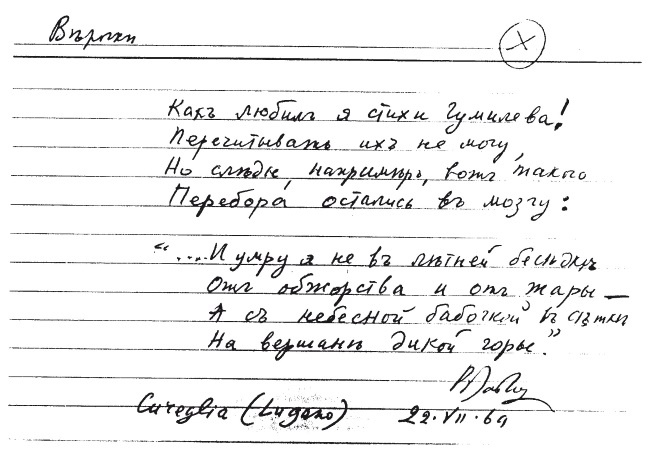 Вѣрочкѣ
X
Какъ любилъ я стихи Гумилева!
Перечитывать ихъ не могу,
Но слѣды, напримѣръ, вотъ такого
Перебора остались въ мозгу:
"....И умру я не въ лѣтней бесѣдкѣ
Отъ обжорства и отъ жары —
А съ небесной бабочкой въ сѣткѣ
На вершинѣ дикой горы."
Cureglia (Lugano)
22·VII·69